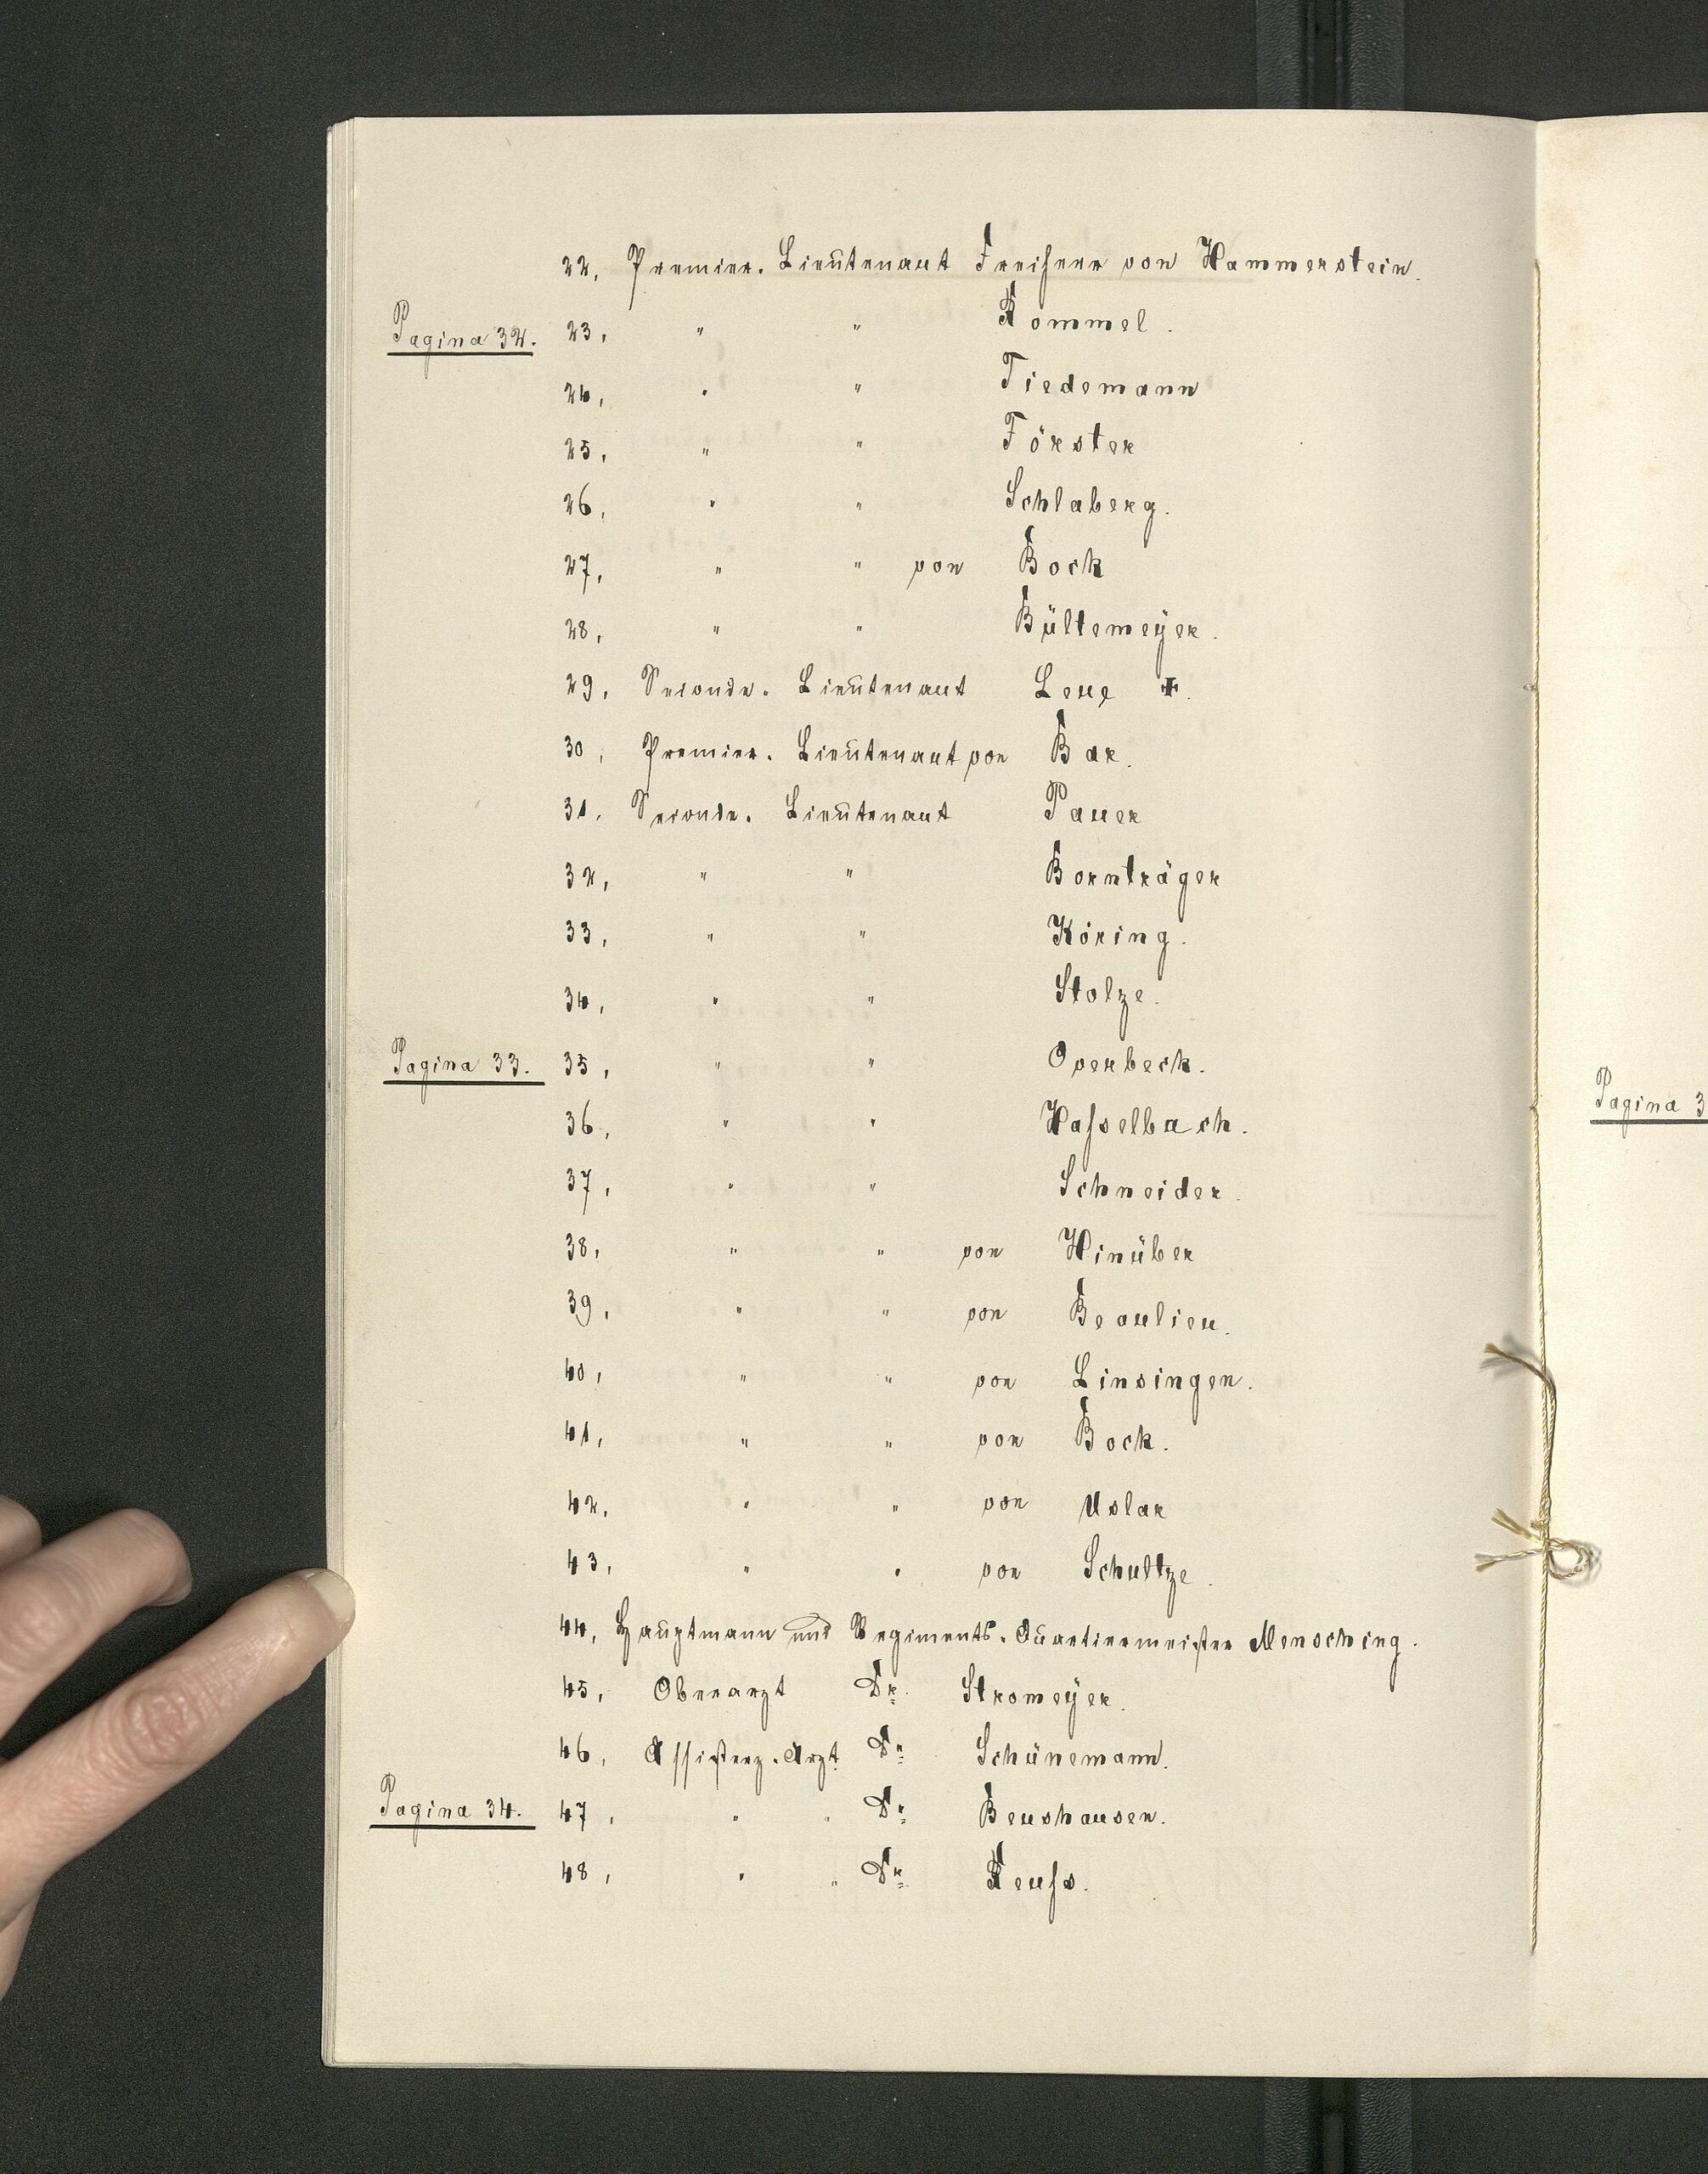 22, Premier-Lieutenant Freiherr von Hammerstein.
Pagina 32. 23, " " Rommel.
24, " " Tiedemann
25, " " Förster
26, " " Schlaberg.
27, " " von Bock
28, " " Bültemeÿer.
29, Seconde-Lieutenant Leue ✝.
30, Premier-Lieutenant von Bar.
31, Seconde-Lieutenant Pauer
32, " " Bornträger
33, " " Köring.
34, " " Stolze.
Pagina 33. 35, " " Overbeck.
36, " " Hasselbach.
37, " " Schneider.
38, " " von Hinüber
39, " " von Beaulieu.
40, " " von Linsingen.
41, " " von Bock.
42, " " von Uslar
43, " " von Schultze.
44, Hauptmann und Regiments-Quartiermeister Mensching.
45, Oberarzt Dr. Stromeÿer.
46, Assistenz-Arzt Dr. Schünemann.
Pagina 34. 47, " " Dr. Beushausen.
48, " " Dr. Reuss.
Pagina 3